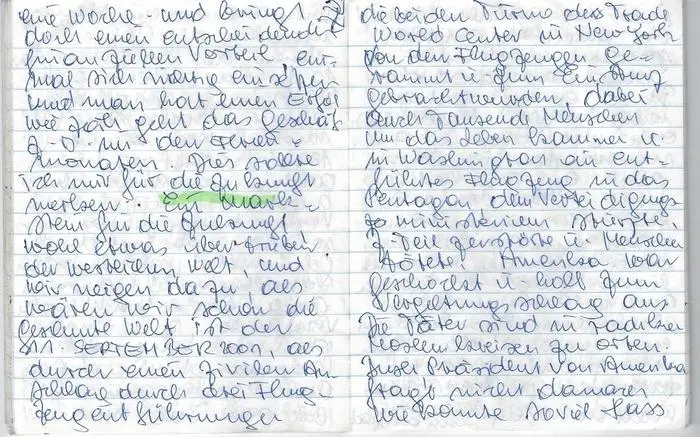 eine Woche - und bringt
doch einen entscheidenden
finanziellen Vorteil ein-
mal sich richtig
und man hat einen Erfolg
wie geht das Geschäft
z.B. in den Ferien-
monaten. Dies sollte
ich mir für die Zukunft
merken. Ein Mark-
stein für die Zukunft,
wohl etwas übertrieben
der westlichen Welt, und
wir neigen dazu, als
wären wir schon die
gesamte Welt ist der
11. SEPTEMBER 2001, als
durch einen zivilen An-
schlag durch drei Flug-
zeugentführungen
die beiden Türme des Trade
World Center in New York
von den Flugzeugen ge-
rammt u. zum Einsturz
gebracht wurden, dabei
auch Tausende Menschen
um das Leben kamen u.
in Washington ein ent-
führtes Flugzeug in das
Pentagon dem Verteidigungs-
ministerium stürzte,
z. Teil zerstörte u. Menschen
tötete. Amerika war
geschockt u. holt zum
Vergeltungsschlag aus.
Die Täter sind in radikalen
Moslemkreisen zu orten.
Präsident von Amerika
fragt nicht danach
wie konnte soviel Hass